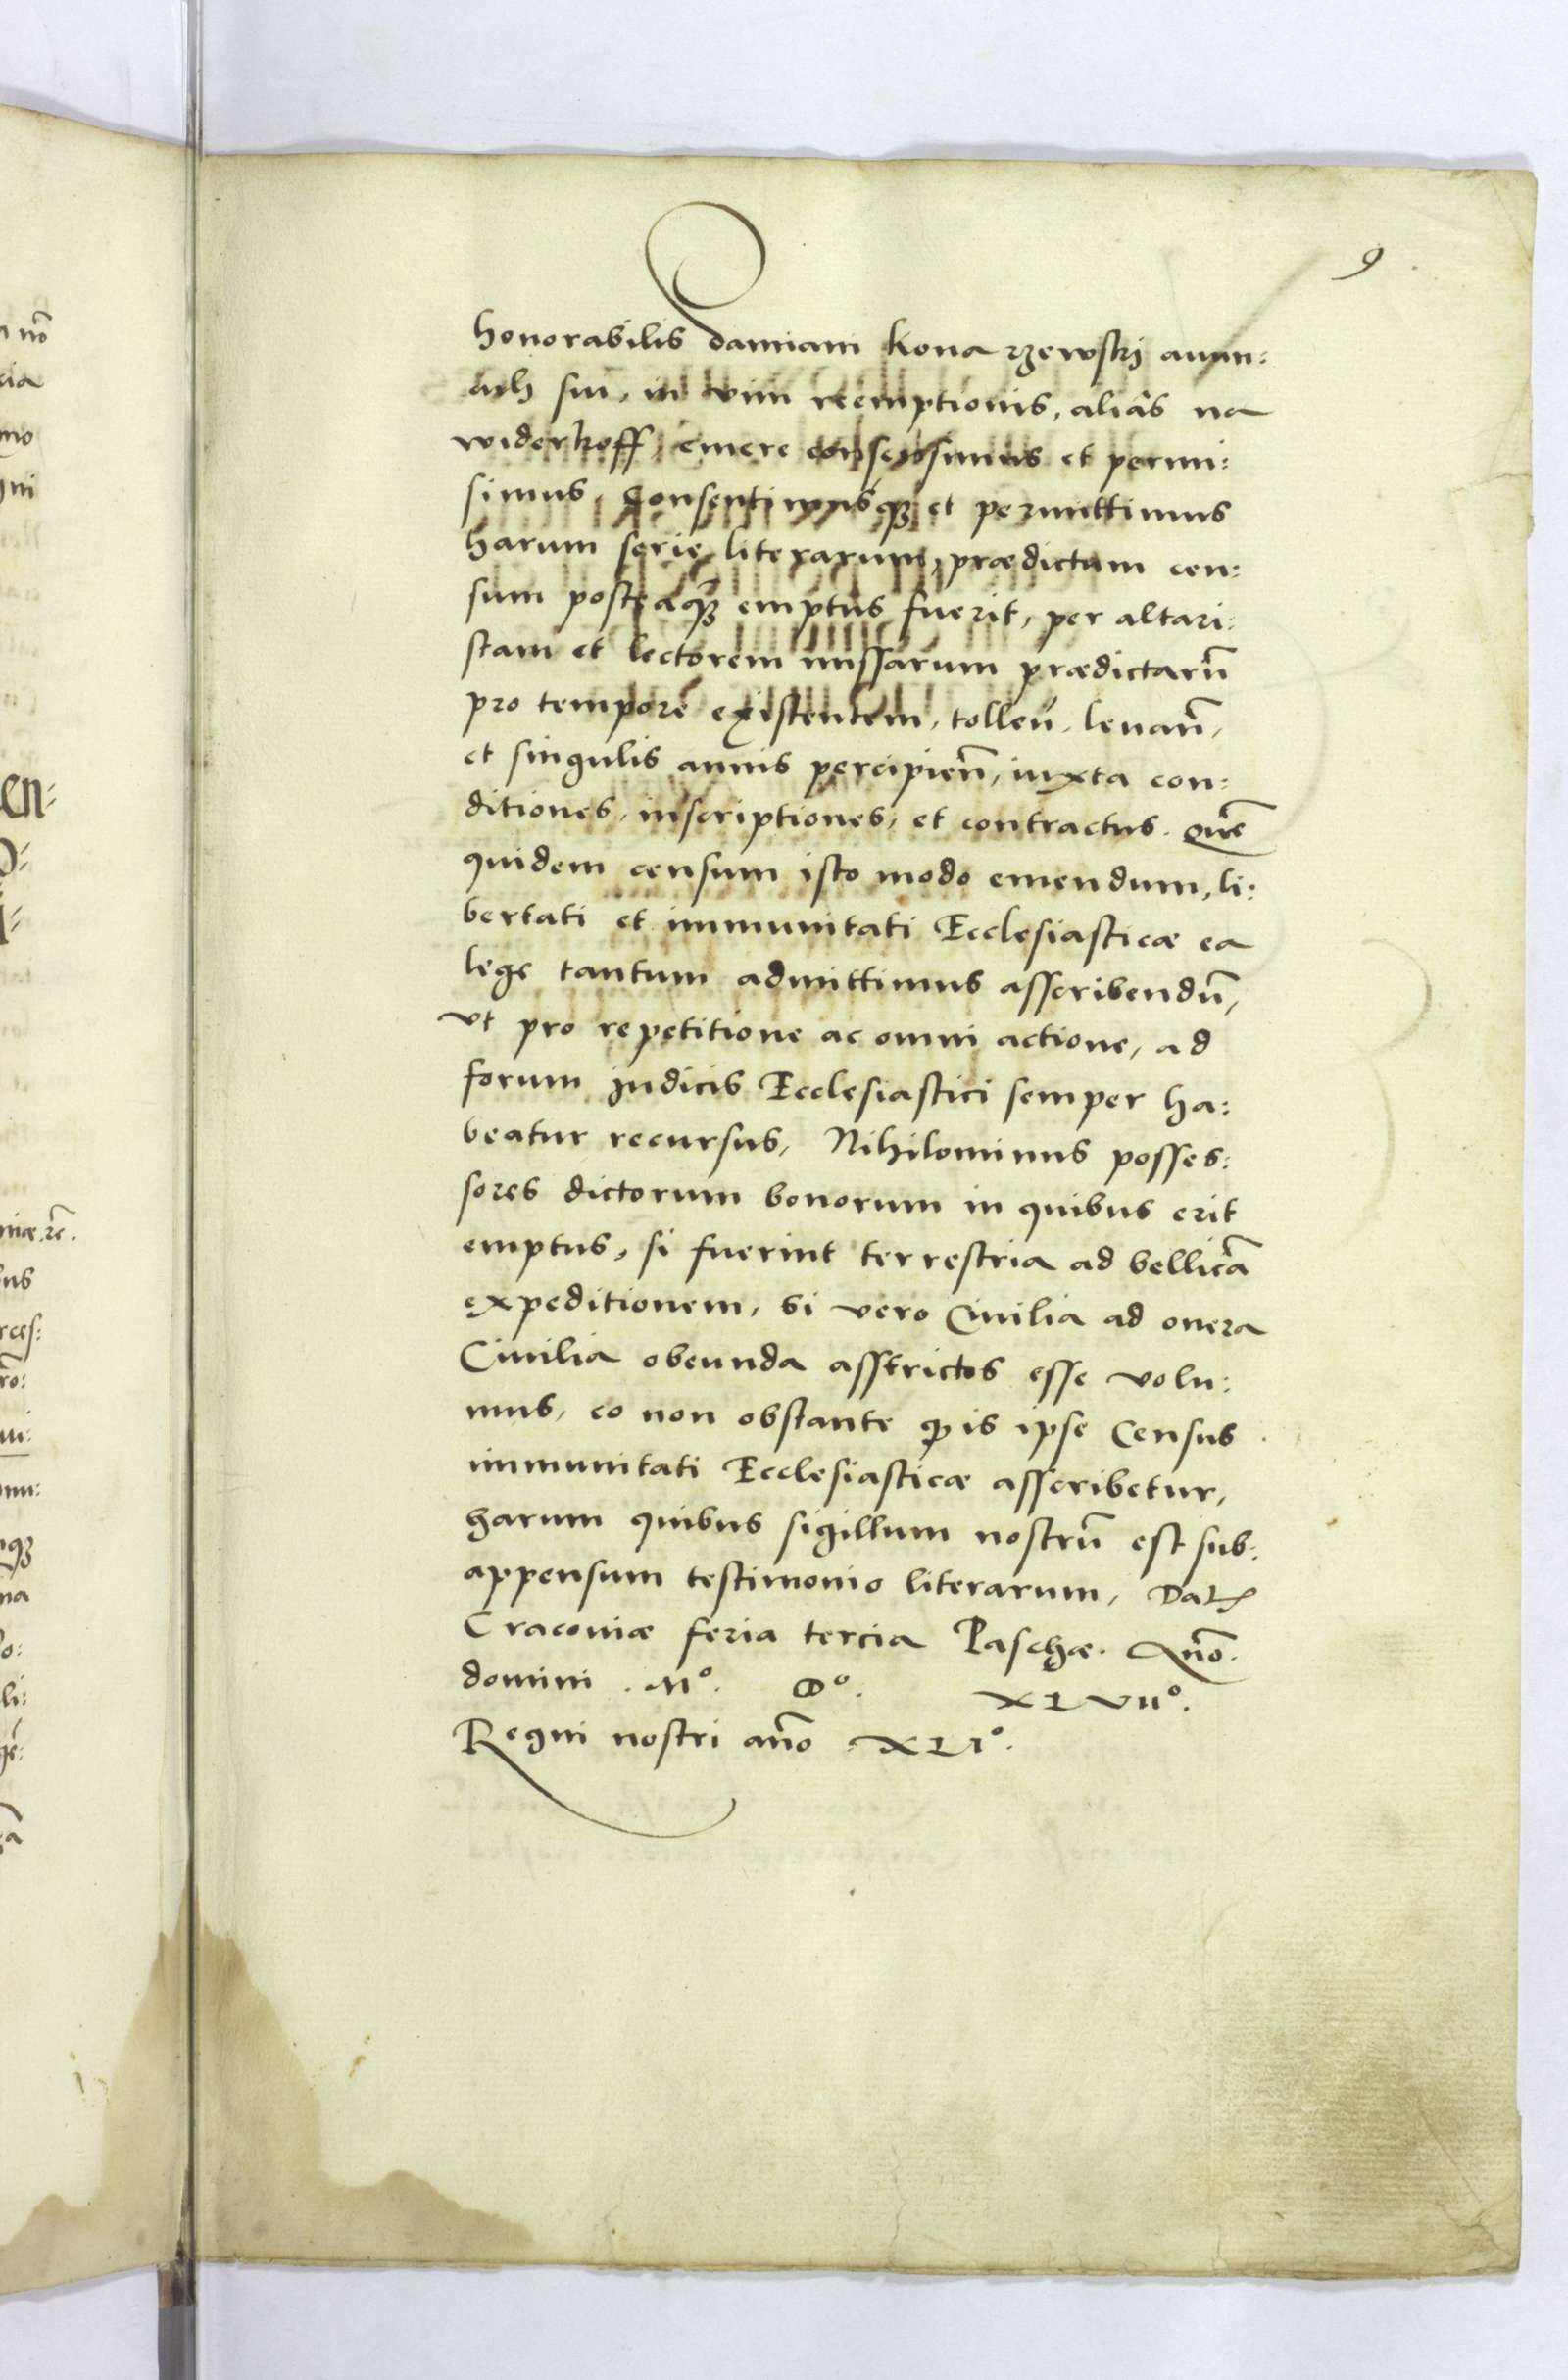 9
honorabilis Damiani Konarzewskj auun:
culi sui, in vim reemptionis, alias na
widerkoff, emere consensimus et permi:
simus, Consentimusq3 et permittimus
harum serie literarum, prædictum cen:
sum posteaq3 emptus fuerit, per altari:
stam et lectorem missarum prædictarū
pro tempore existentem, tollen̄, leuan̄,
et singulis annis percipien̄, iuxta con:
ditiones, inscriptiones, et contractus. Quē
quidem censum isto modo emendum, li:
bertati et immunitati Ecclesiasticæ ea
lege tantum admittimus asscribendū,
vt pro repetitione ac omni actione, ad
forum judicis Ecclesiastici semper ha:
beatur recursus, Nihilominus posses:
sores dictorum bonorum in quibus erit
emptus, si fuerint terrestria ad bellicā
expeditionem, Si vero Ciuilia ad onera
Ciuilia obeunda asstrictos esse volu:
mus, eo non obstante ꝙ is ipse Census
immunitati Ecclesiasticæ asscribetur,
harum quibus sigillum nostrū est sub:
appensum testimonio literarum, Dat
Cracouiæ feria tercia Paschæ. Anō.
domini . Mº. Dº. XLVIIº.
Regni nostri anō XLIº.